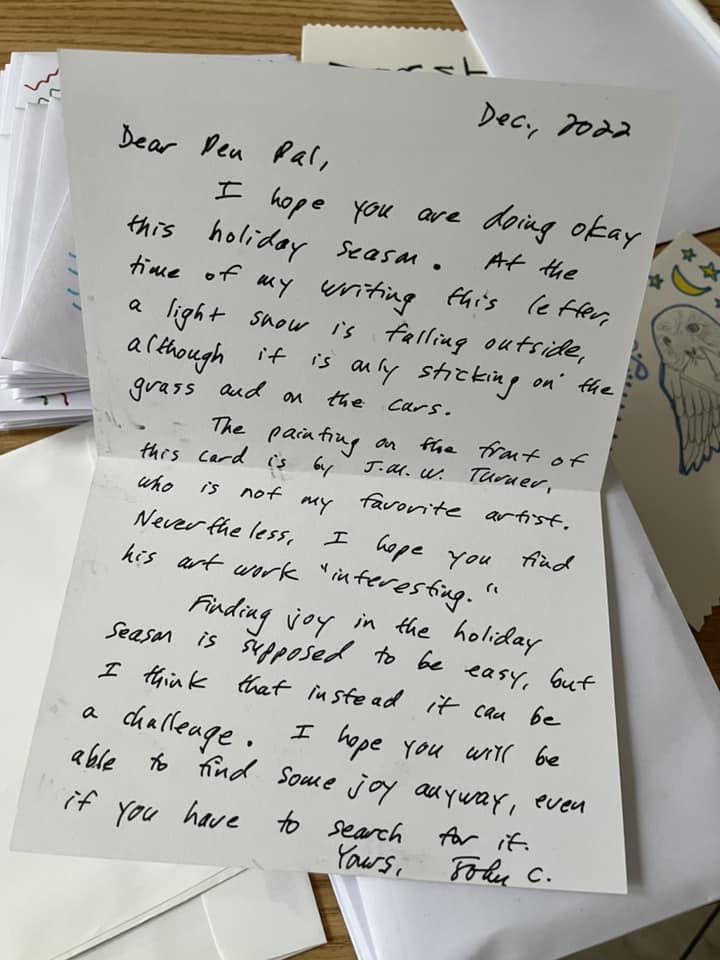 Dec., 2022
Dear Pen Pal,
I hope you are doing okay
this holiday season. At the
time of my writing this letter,
a light snow is falling outside,
although it is only sticking on the
grass and on the cars.
The painting on the front of
this card is by J.M.W. Turner,
who is not my favorite artist.
Nevertheless, I hope you find
his art work "interesting."
Finding joy in the holiday
season is supposed to be easy, but
I think that instead it can be
a challenge. I hope you will be
able to find some joy anyway, even
if you have to search for it.
Yours, John C.